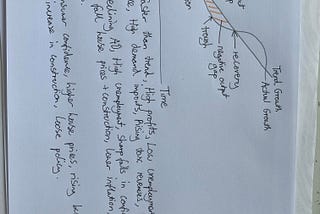 Trend Growth
Actual Growth
recovery
negative output
gap
trough
Time
faster than trend, High profits, Low unemployment
High demand imports, Rising tax revenues,
declining AD, High unemployment, Slump falls in
fall house prices + construction, lower inflation,
consumer confidence, higher house prices, rising
increase in construction, loose policy.